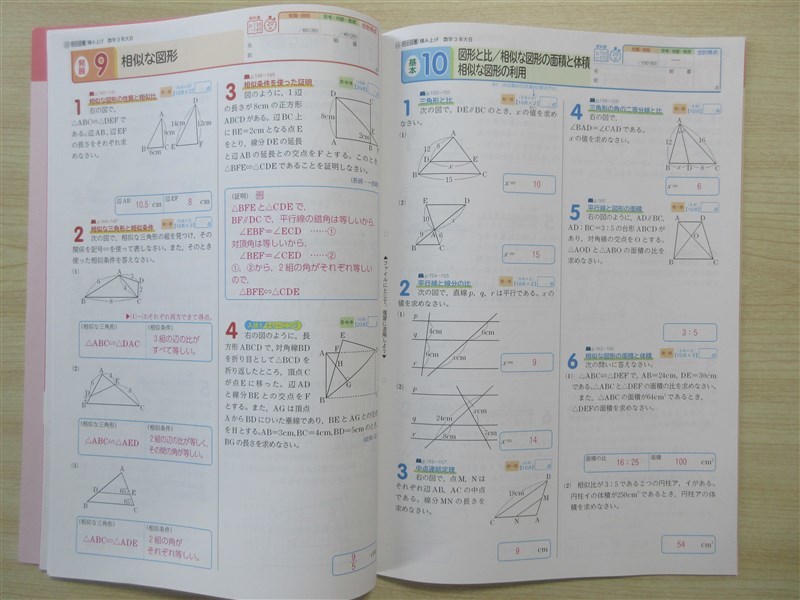 積み上げ 数学3年大日
発展 9 相似な図形
1
相似な図形の性質と相似比
右の図で、
△ABC∽△DEFで
ある。辺AB、辺EF
の長さをそれぞれ求
めなさい。
A
14cm
B 6cm C
D
12cm
E F
辺AB 10.5 cm
辺EF 8 cm
2
相似な三角形と相似条件
次の図で、相似な三角形の組を見つけ、その
関係を記号∽を使って表しなさい。また、そのとき
使った相似条件を答えなさい。
(1)
(相似な三角形)
△ABC∽△DAC
(相似条件)
3組の辺の比が
すべて等しい。
(2)
(相似な三角形)
△ABC∽△AED
(相似条件)
2組の辺の比が等しく、
その間の角が等しい。
(3)
(相似な三角形)
△ABC∽△ADE
(相似条件)
2組の角が
それぞれ等しい。
3
相似条件を使った証明
図のように、1辺
の長さが8cmの正方形
ABCDがある。辺BC上
にBE=2cmとなる点E
をとり、線分DEの延長
と辺ABの延長との交点をFとする。このとき
△BFE∽△CDEであることを証明しなさい。
(証明) 例
△BFEと△CDEで、
BF//DCで、平行線の錯角は等しいから、
∠EBF=∠ECD ……①
対頂角は等しいから、
∠BEF=∠CED ……②
①、②から、2組の角がそれぞれ等しい
ので、
△BFE∽△CDE
4
右の図のように、長
方形ABCDで、対角線BD
を折り目として△BCDを
折り返したところ、頂点C
が点Eに移った。辺AD
と線分BEとの交点をF
とする。また、AGは頂点
AからBDにひいた垂線であり、BEとAGとの交点
をHとする。AB=3cm、BC=4cm、BD=5cmのとき、
BGの長さを求めなさい。
9/5 cm
▲ファイルにとじて、復習に活用しよう▼
積み上げ 数学3年大日
基本 10 図形と比/相似な図形の面積と体積
相似な図形の利用
1
三角形と比
次の図で、DE//BCのとき、xの値を求め
なさい。
(1)
x= 10
(2)
x= 15
2
平行線と線分の比
次の図で、直線p、q、rは平行である。xの
値を求めなさい。
(1)
4cm
6cm
6cm
xcm
x= 9
(2)
24cm
8cm
x= 14
3
中点連結定理
右の図で、点M、Nは
それぞれ辺AB、ACの中点
である。線分MNの長さを
求めなさい。
18cm
B
M
C N A
9 cm
4
三角形の角の二等分線と比
右の図で、
∠BAD=∠CADである。
xの値を求めなさい。
x= 6
5
平行線と図形の面積
右の図のように、AD//BC、
AD：BC=3：5の台形ABCDが
あり、対角線の交点をOとする。
△AODと△ABOの面積の比を
求めなさい。
3：5
6
相似な図形の面積と体積
次の問いに答えなさい。
(1) △ABC∽△DEFで、AB=24cm、DE=30cm
である。△ABCと△DEFの面積の比を求めなさい。
また、△ABCの面積が64cm²であるとき、
△DEFの面積を求めなさい。
面積の比 16：25
面積 100 cm²
(2) 相似比が3：5である2つの円柱ア、イがある。
円柱イの体積が250cm³であるとき、円柱アの体
積を求めなさい。
54 cm³